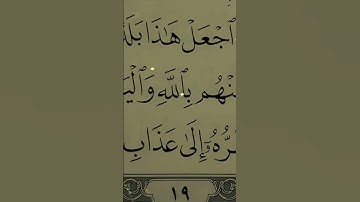 ٱجْعَلْ هَٰذَا بَلَدً
مِنْهُم بِٱللَّهِ وَٱلْيَ
ضْطَرُّهُۥٓ إِلَىٰ عَذَابِ
١٩